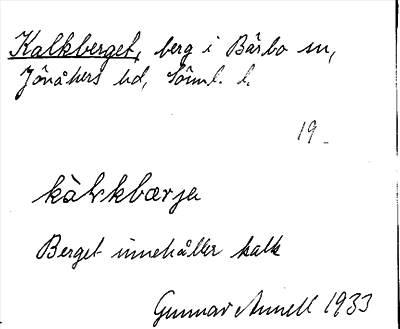 Kalkberget, berg i Bärbo sn,
Jönåkers hd, Sörml. l.
19_
kàlkbærja
Berget innehåller kalk
Gunnar Annell 1933